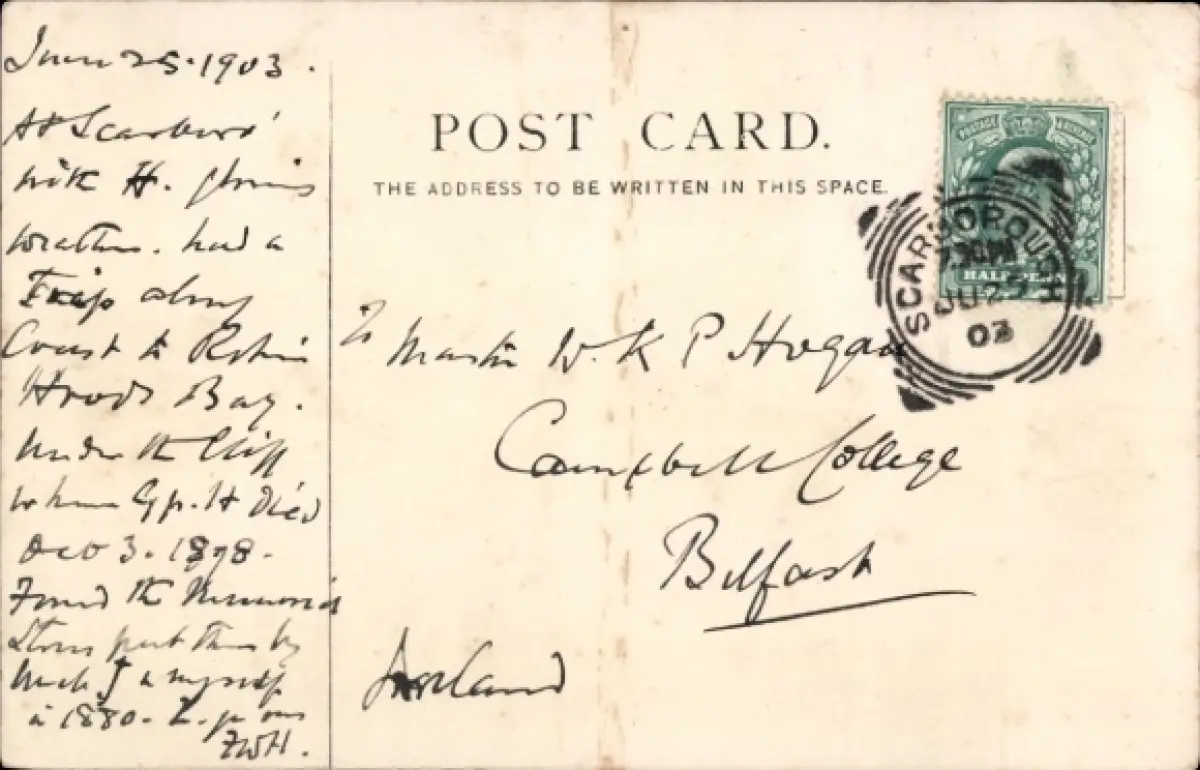 June 25. 1903.
At Scarboro'
with H. glorious
weather. had a
Trip along
Coast to Robin
Hoods Bay.
Under the Cliff
where Gp. H Died
Oct 3. 1878.
Found the Memorial
Stone put there by
Uncle J & myself
in 1880.
FWH.
POST CARD.
THE ADDRESS TO BE WRITTEN IN THIS SPACE.
To Master W. K P Hogan
Campbell College
Belfast
Ireland
POSTAGE & REVENUE
HALF PENNY
SCARBOROUGH
7.30PM
JU 25
03